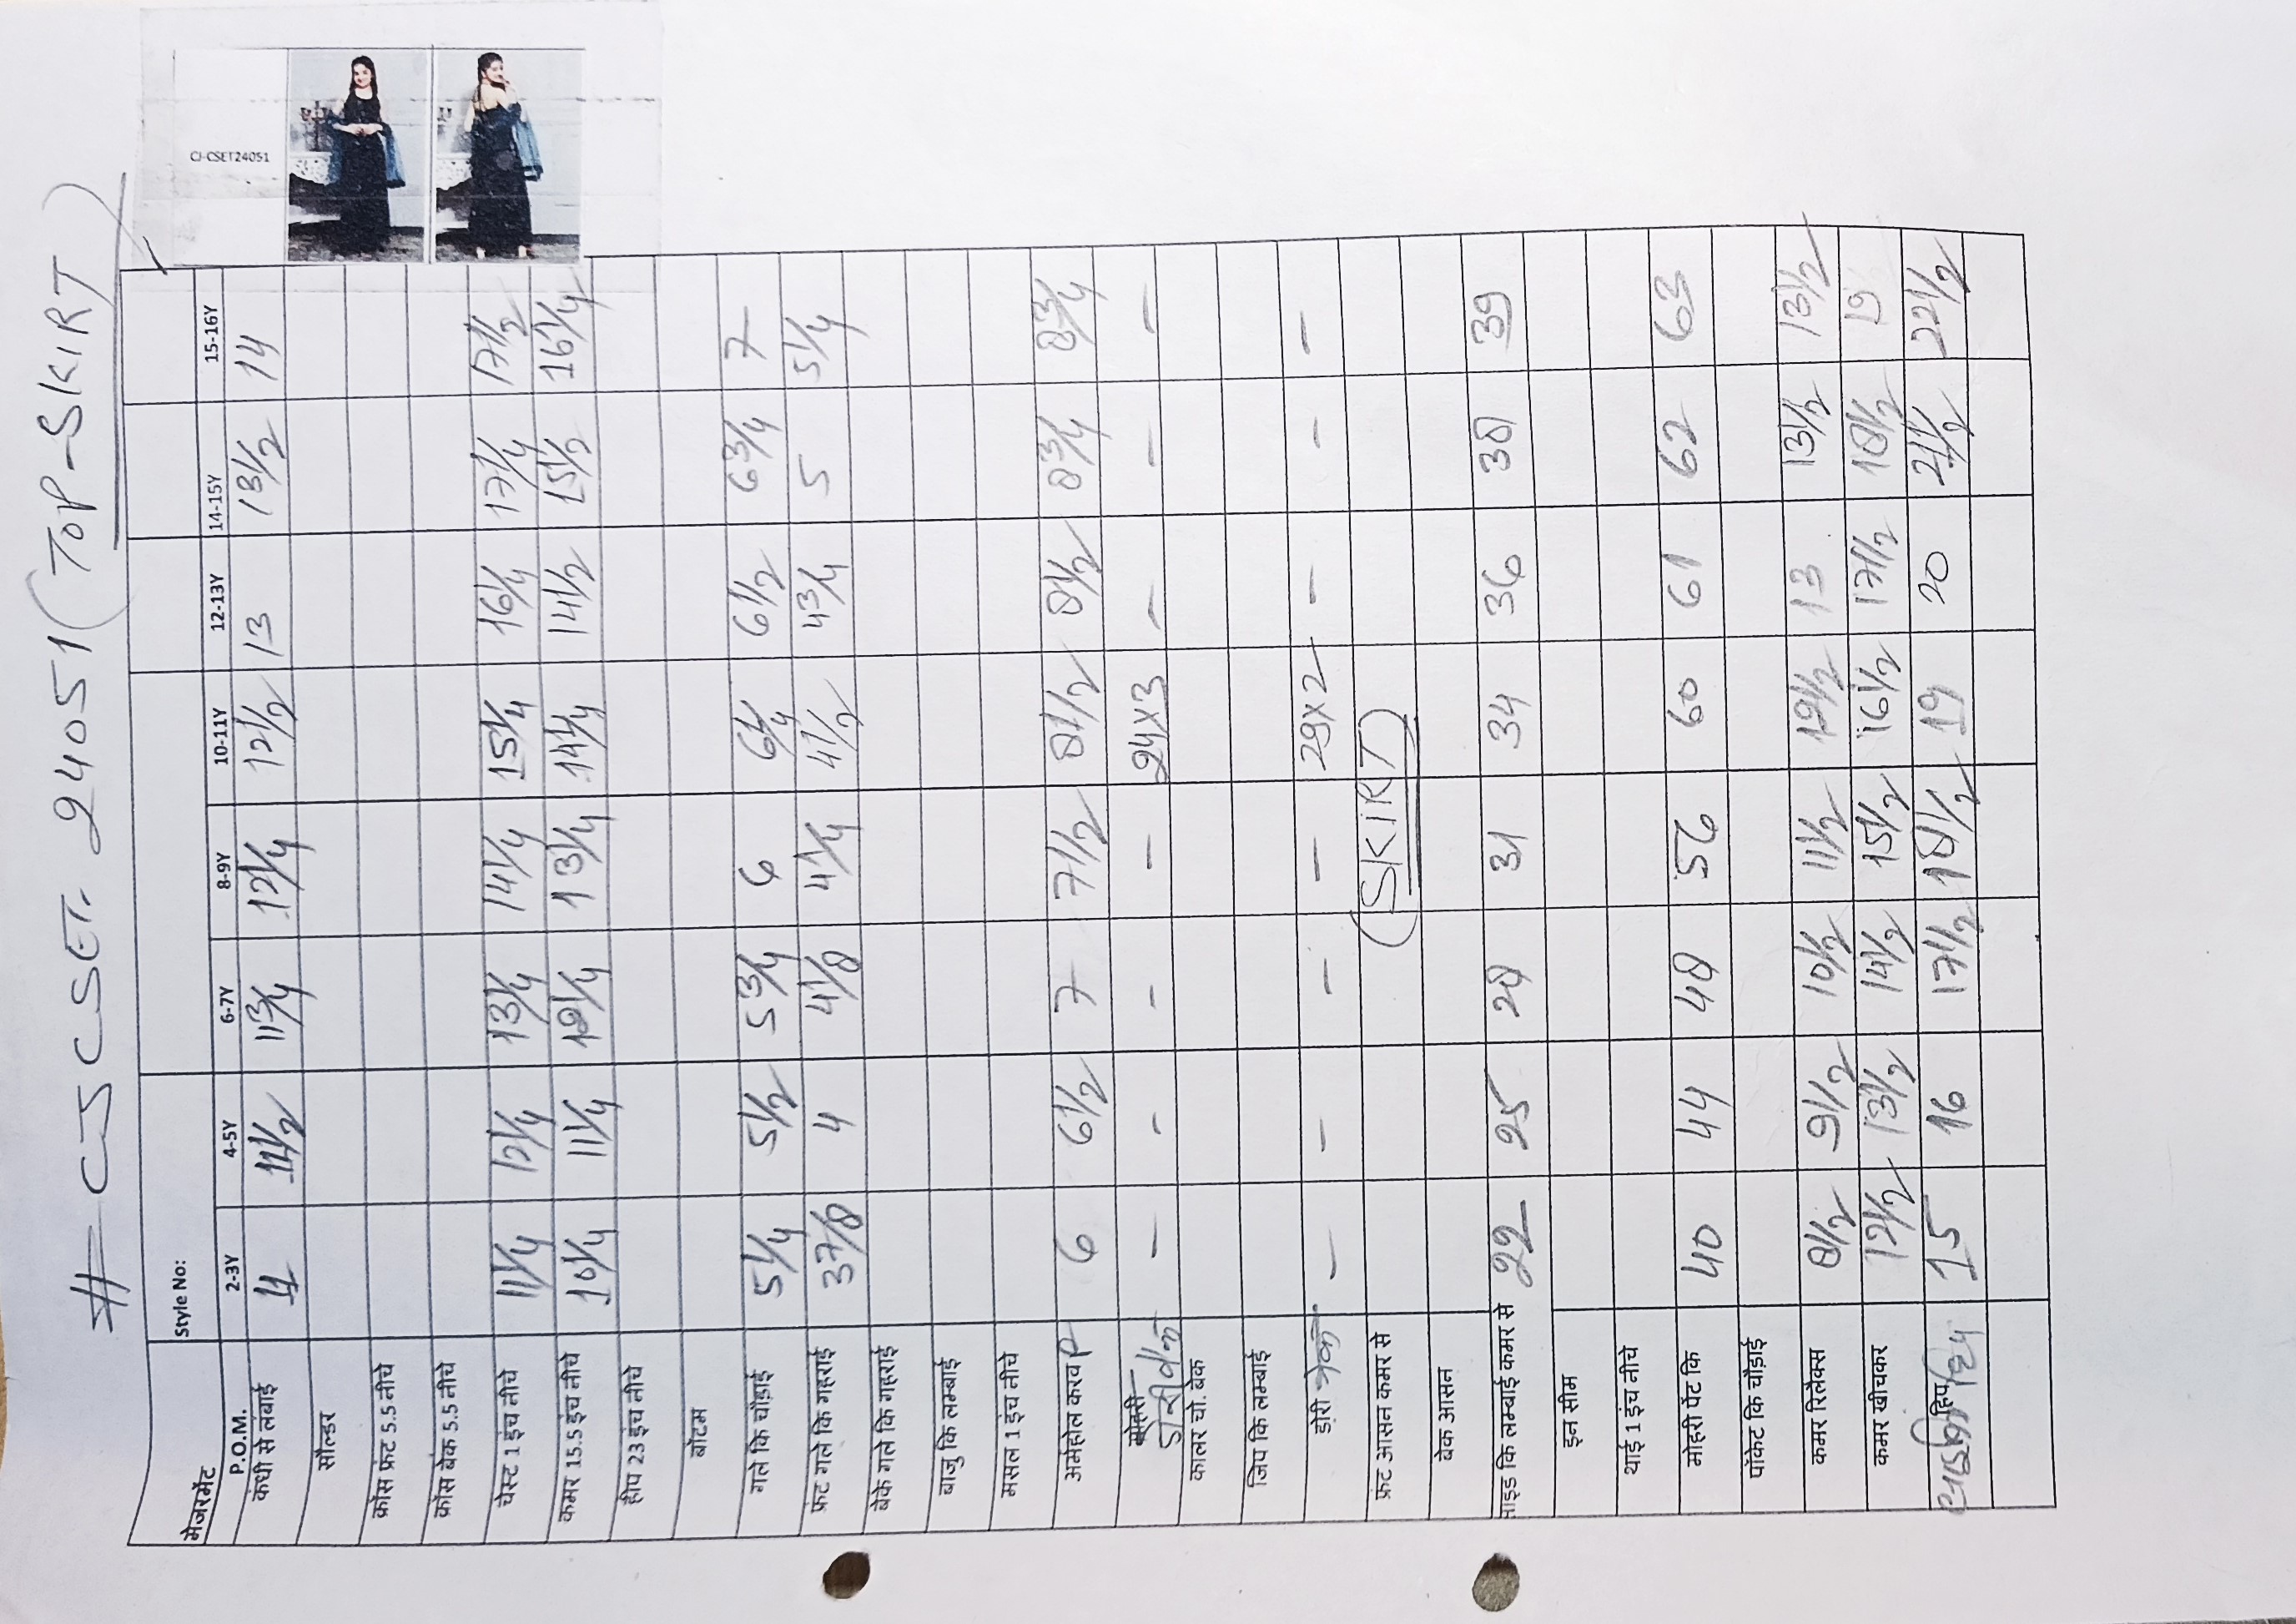 # CJ CSET. 24051 (TOP-SKIRT)
CJ-CSET24051
मेजरमेंट Style No:
P.O.M. 2-3Y 4-5Y 6-7Y 8-9Y 10-11Y 12-13Y 14-15Y 15-16Y
कंधी से लंबाई 11 11 1/2 11 3/4 12 1/4 12 1/2 13 13 1/2 14
सौल्डर
क्रॉस फ्रंट 5.5 नीचे
क्रॉस बेक 5.5 नीचे
चेस्ट 1 इंच नीचे 11 1/4 12 1/4 13 1/4 14 1/4 15 1/4 16 1/4 17 1/4 17 1/2
कमर 15.5 इंच नीचे 10 1/4 11 1/4 12 1/4 13 1/4 14 1/4 14 1/2 15 1/2 16 1/4
हीप 23 इंच नीचे
बॉटम
गले कि चौड़ाई 5 1/4 5 1/2 5 3/4 6 6 1/4 6 1/2 6 3/4 7
फ्रंट गले कि गहराई 3 7/8 4 4 1/8 4 1/4 4 1/2 4 3/4 5 5 1/4
बेके गले कि गहराई
बाजु कि लम्बाई
मसल 1 इंच नीचे
अर्महोल करव P 6 6 1/2 7 7 1/2 8 1/2 8 1/2 8 3/4 8 3/4
- - - - 24x3 - - -
कालर चो. बेक
जिप कि लम्बाई
डोरी नेक - - - - 29x2 - - -
फ्रंट आसन कमर से (SKIRT)
बेक आसन
साइड कि लम्बाई कमर से 22 25 28 31 34 36 38 39
इन सीम
थाई 1 इंच नीचे
मोहरी पेंट कि 40 44 48 56 60 61 62 63
पॉकेट कि चौड़ाई
कमर रिलैक्स 8 1/2 9 1/2 10 1/2 11 1/2 12 1/2 13 13 1/2 13 1/2
कमर खीचकर 12 1/2 13 1/2 14 1/2 15 1/2 16 1/2 17 1/2 18 1/2 19
हिप 15 16 17 1/2 18 1/2 19 20 21 1/2 22 1/2